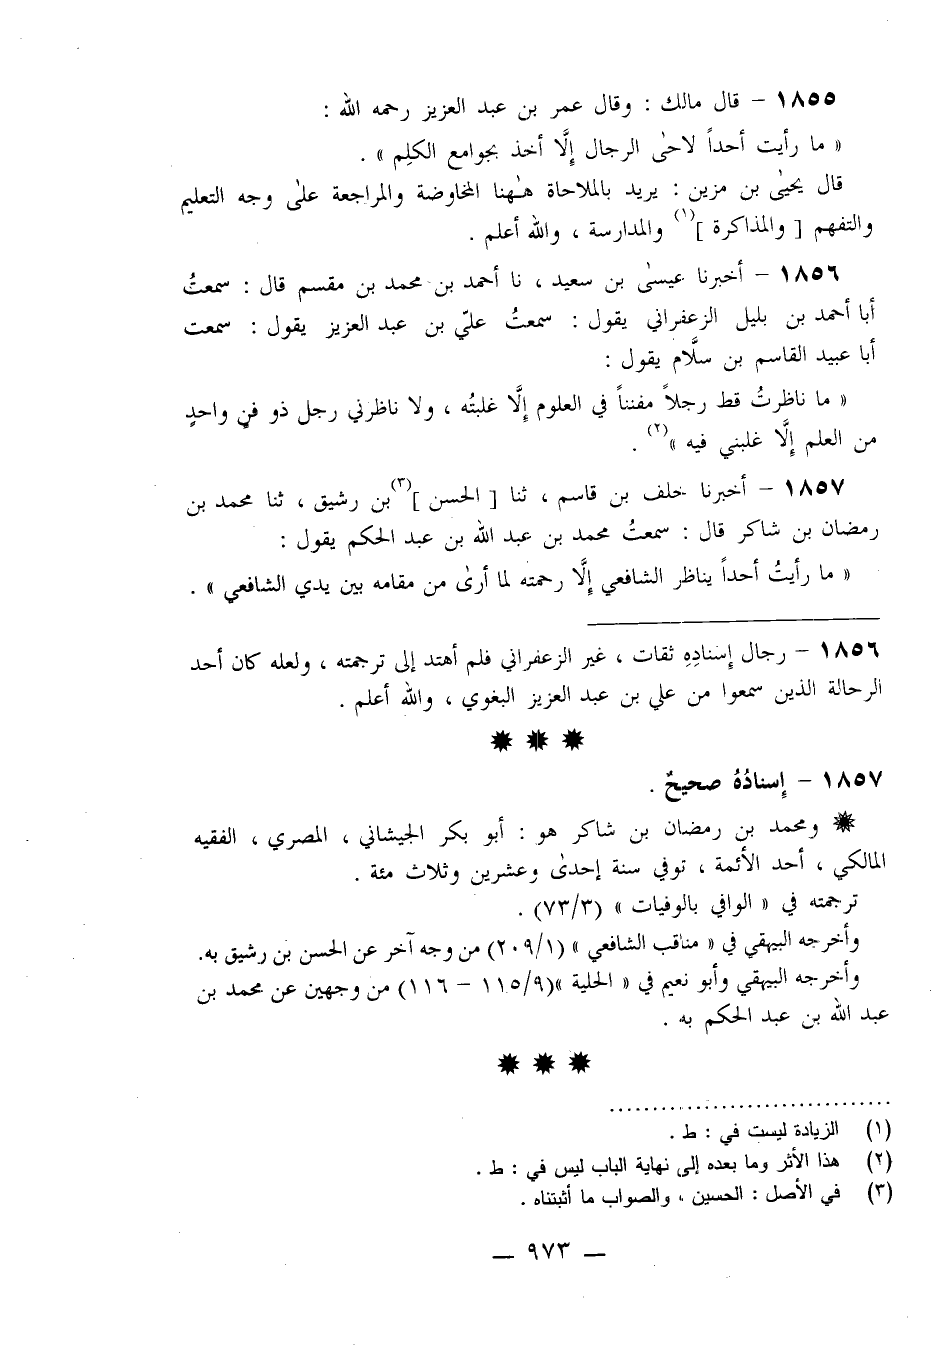 ١٨٥٥ - قال مالك : وقال عمر بن عبد العزيز رحمه الله :
« ما رأيت أحداً لاحىٰ الرجال إلَّا أخذ بجوامع الكلِم » .
قال يحيىٰ بن مزين : يريد بالملاحاة هـٰهنا المخاوضة والمراجعة علىٰ وجه التعليم
والتفهم [ والمذاكرة ](١) والمدارسة ، والله أعلم .
١٨٥٦ - أخبرنا عيسىٰ بن سعيد ، نا أحمد بن محمد بن مقسم قال : سمعتُ
أبا أحمد بن بليل الزعفراني يقول : سمعتُ عليّ بن عبد العزيز يقول : سمعت
أبا عبيد القاسم بن سلَّام يقول :
« ما ناظرتُ قط رجلاً مفنناً في العلوم إلَّا غلبتُه ، ولا ناظرني رجل ذو فنٍ واحدٍ
من العلم إلَّا غلبني فيه »(٢) .
١٨٥٧ - أخبرنا خلف بن قاسم ، ثنا [ الحسن ](٣) بن رشيق ، ثنا محمد بن
رمضان بن شاكر قال : سمعتُ محمد بن عبد الله بن عبد الحكم يقول :
« ما رأيتُ أحداً يناظر الشافعي إلَّا رحمته لما أرىٰ من مقامه بين يدي الشافعي » .
١٨٥٦ - رجال إسنادِهِ ثقات ، غير الزعفراني فلم أهتد إلى ترجمته ، ولعله كان أحد
الرحالة الذين سمعوا من علي بن عبد العزيز البغوي ، والله أعلم .
١٨٥٧ - إسنادُهُ صحيحٌ .
ومحمد بن رمضان بن شاكر هو : أبو بكر الجيشاني ، المصري ، الفقيه
المالكي ، أحد الأئمة ، توفي سنة إحدىٰ وعشرين وثلاث مئة .
ترجمته في « الوافي بالوفيات » (٧٣/٣) .
وأخرجه البيهقي في « مناقب الشافعي » (٢٠٩/١) من وجه آخر عن الحسن بن رشيق به.
وأخرجه البيهقي وأبو نعيم في « الحلية »(١١٥/٩ - ١١٦) من وجهين عن محمد بن
عبد الله بن عبد الحكم به .
(١) الزيادة ليست في : ط .
(٢) هذا الأثر وما بعده إلى نهاية الباب ليس في : ط .
(٣) في الأصل : الحسين ، والصواب ما أثبتناه .
— ٩٧٣ —